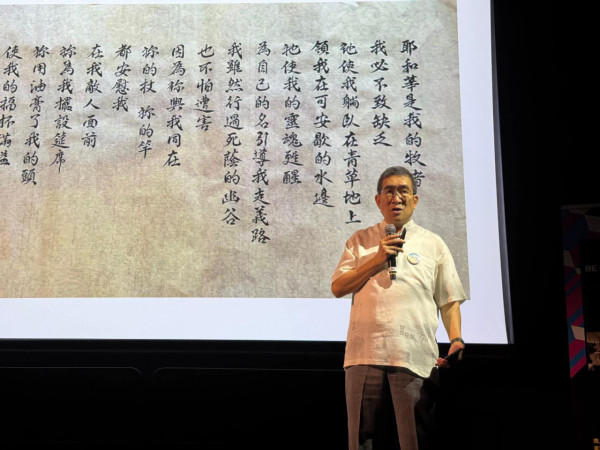 耶和華是我的牧者
我必不致缺乏
祂使我躺臥在青草地上
領我在可安歇的水邊
祂使我的靈魂甦醒
為自己的名引導我走義路
我雖然行過死蔭的幽谷
也不怕遭害
因為祢與我同在
祢的杖 祢的竿
都安慰我
在我敵人面前
祢為我擺設筵席
祢用油膏了我的頭
使我的福杯滿溢
BE